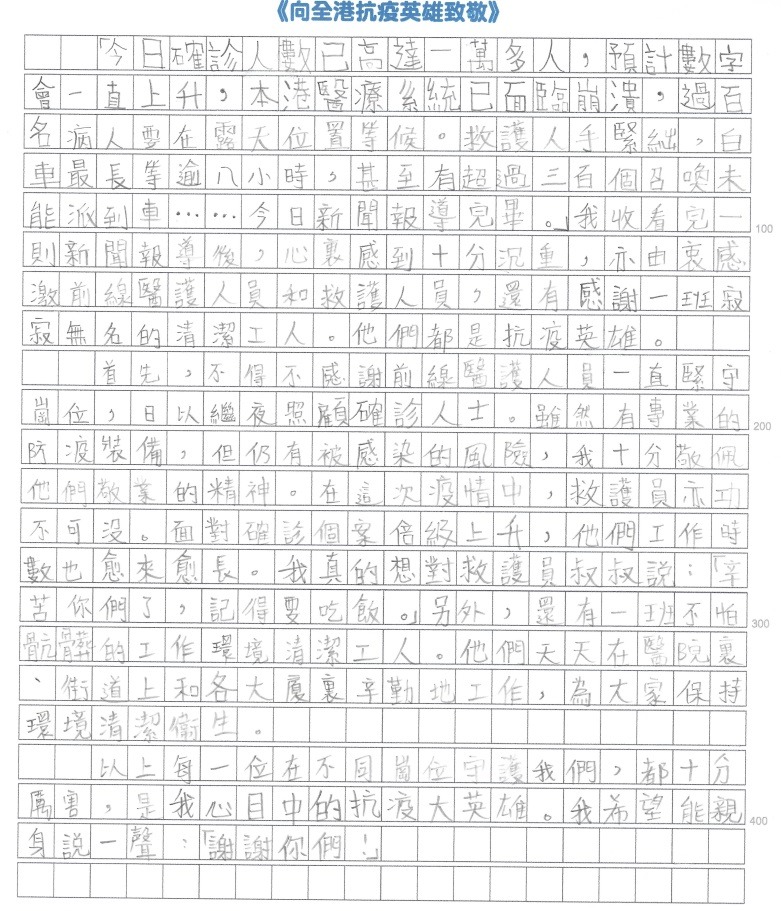 《向全港抗疫英雄致敬》
「今日確診人數已高達一萬多人，預計數字
會一直上升，本港醫療系統已面臨崩潰，過百
名病人要在露天位置等候。救護人手緊絀，白
車最長等逾八小時，甚至有超過三百個召喚未
能派到車……今日新聞報導完畢。」我收看完一
100
則新聞報導後，心裏感到十分沉重，亦由衷感
激前線醫護人員和救護人員，還有感謝一班寂
寂無名的清潔工人。他們都是抗疫英雄。
首先，不得不感謝前線醫護人員一直緊守
崗位，日以繼夜照顧確診人士。雖然有專業的
200
防疫裝備，但仍有被感染的風險，我十分敬佩
他們敬業的精神。在這次疫情中，救護員亦功
不可沒。面對確診個案倍級上升，他們工作時
數也愈來愈長。我真的想對救護員叔叔説：「辛
苦你們了，記得要吃飯。」另外，還有一班不怕
300
骯髒的工作環境清潔工人。他們天天在醫院裏
、街道上和各大廈裏辛勤地工作，為大家保持
環境清潔衞生。
以上每一位在不同崗位守護我們，都十分
厲害，是我心目中的抗疫大英雄。我希望能親
400
身説一聲：「謝謝你們！」